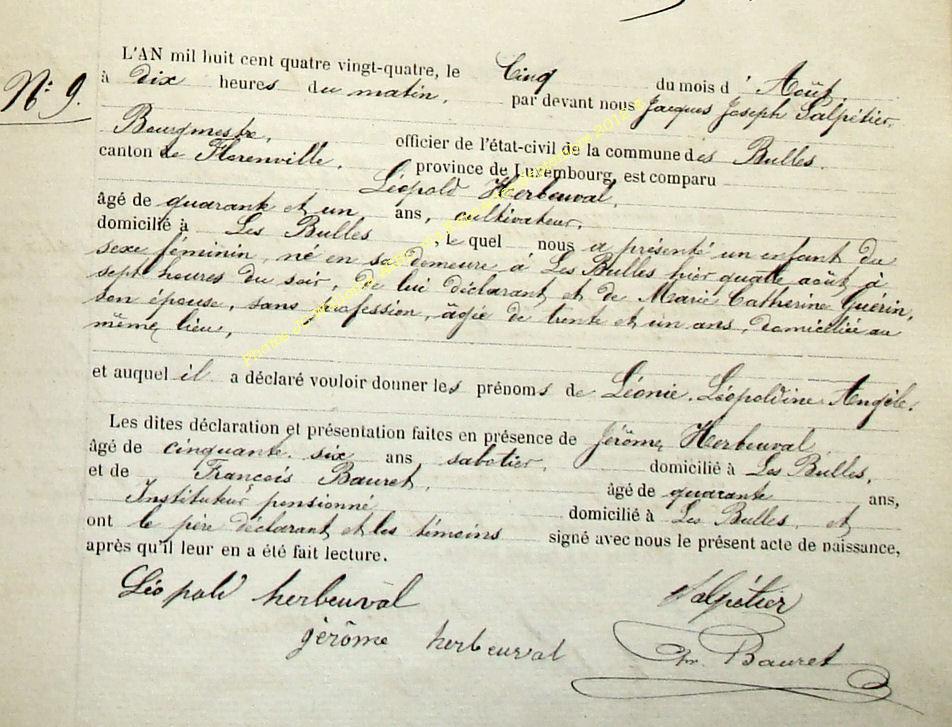 N° 9.
L'AN mil huit cent quatre vingt-quatre, le Cinq du mois d' Août,
à dix heures du matin, par devant nous Jacques Joseph Salpétier,
Bourgmestre, officier de l'état-civil de la commune des Bulles,
canton de Florenville, province de Luxembourg, est comparu
Léopold Herbeuval,
âgé de quarante et un ans, cultivateur,
domicilié à Les Bulles, le quel nous a présenté un enfant du
sexe féminin, né en sa demeure à Les Bulles hier quatre août à
sept heures du soir, de lui déclarant et de Marie Catherine Guérin,
son épouse, sans profession, âgée de trente et un ans, domiciliée au
même lieu,
et auquel il a déclaré vouloir donner les prénoms de Léonie, Léopoldine Angèle.
Les dites déclaration et présentation faites en présence de Jérôme Herbeuval,
âgé de cinquante six ans, sabotier, domicilié à Les Bulles,
et de François Bauret, âgé de quarante ans,
Instituteur pensionné domicilié à Les Bulles, et
ont le père déclarant et les témoins signé avec nous le présent acte de naissance,
après qu'il leur en a été fait lecture.
Léopold herbeuval Salpétier
jérôme herbeuval Bauret